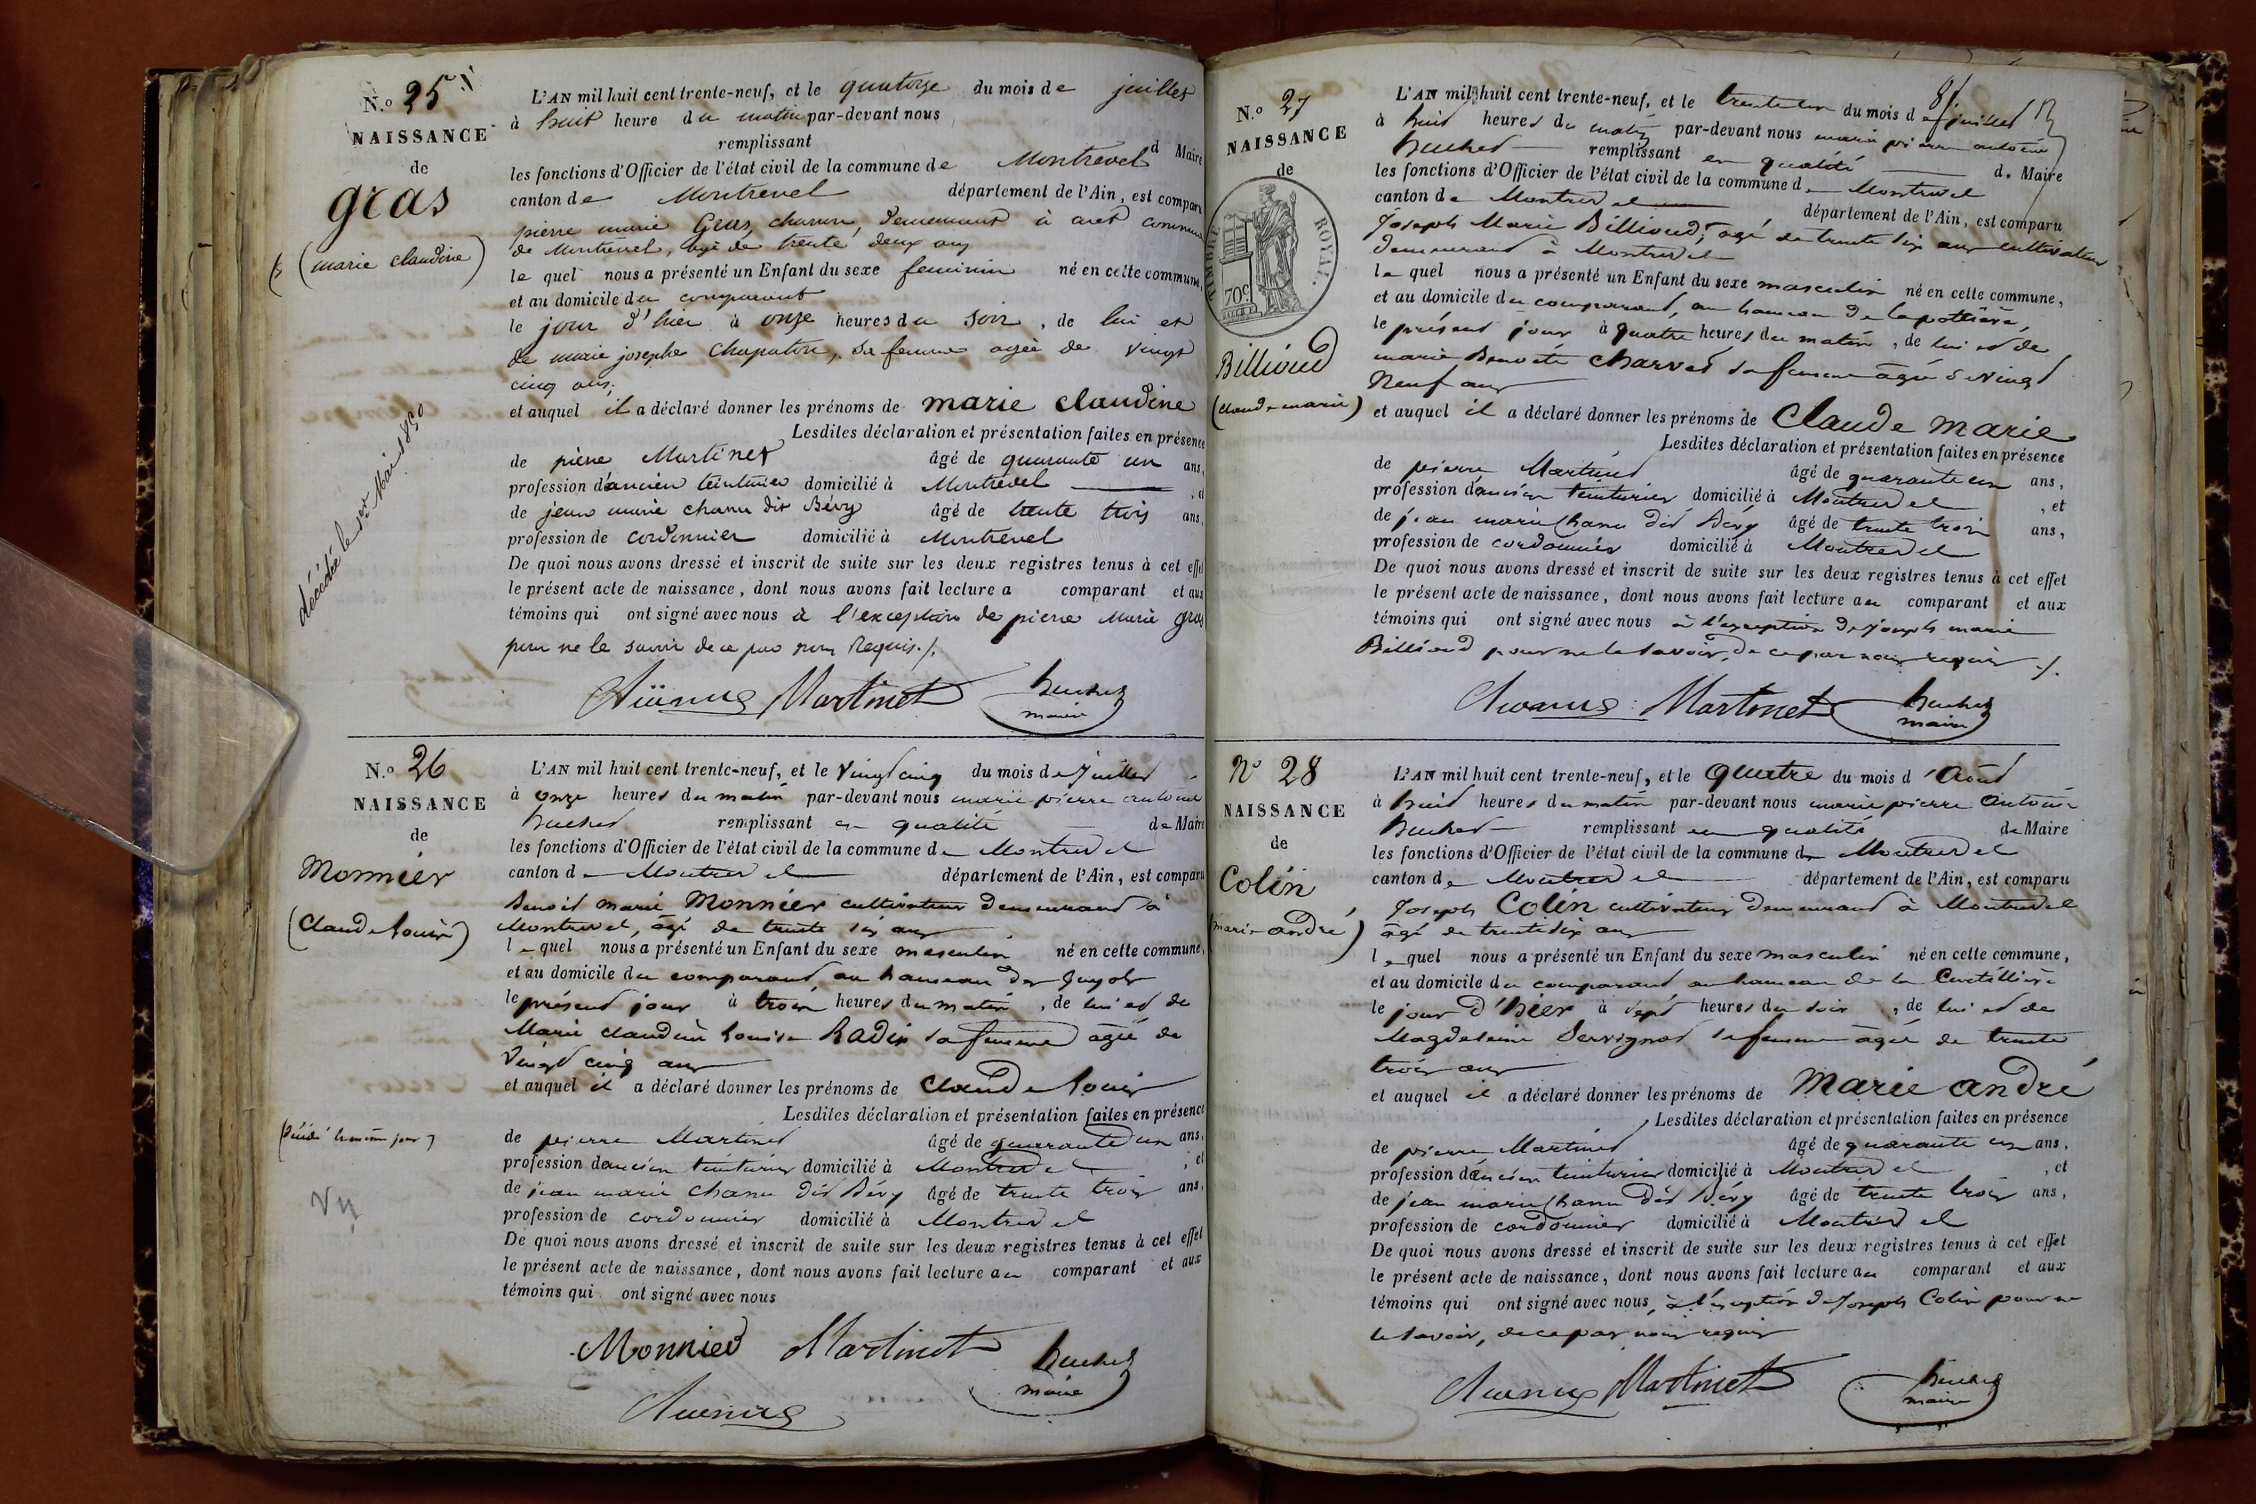 N.o 25
NAISSANCE
de
gras
(marie claudine)
décédée le 1er Mai 1890
L'AN mil huit cent trente-neuf, et le quatorze du mois de juillet
à huit heure du matin par-devant nous
remplissant d Maire
les fonctions d'Officier de l'état civil de la commune de Montrevel
canton de Montrevel département de l'Ain, est comparu
pierre marie Gras, charron, demeurant à cret commune
de Montrevel, agé de trente deux ans
le quel nous a présenté un Enfant du sexe feminin né en cette commune,
et au domicile du comparant
le jour d'hier à onze heures du soir, de lui et
de marie josephe Chaputon, sa femme agée de vingt
cinq ans.
et auquel il a déclaré donner les prénoms de marie claudine
Lesdites déclaration et présentation faites en présence
de pierre Martinet âgé de quarante un ans,
profession d'ancien teinturier domicilié à Montrevel, et
de jean marie chanu dit Bévy âgé de trente trois ans,
profession de cordonnier domicilié à Montrevel
De quoi nous avons dressé et inscrit de suite sur les deux registres tenus à cet effet
le présent acte de naissance, dont nous avons fait lecture a comparant et aux
témoins qui ont signé avec nous à l'exception de pierre Marie gras
pour ne le savoir de ce par nous Requis ./.
Martinet huchet
maire
N.o 26
NAISSANCE
de
Monnier
(Claude Louis)
(Décédé le même jour)
L'AN mil huit cent trente-neuf, et le vingt cinq du mois de Juillet
à onze heures du matin par-devant nous marie pierre antoine
huchet remplissant en qualité de Maire
les fonctions d'Officier de l'état civil de la commune de Montrevel
canton de Montrevel département de l'Ain, est comparu
Benoit marie Monnier cultivateur demeurant à
Montrevel, agé de trente six ans
le quel nous a présenté un Enfant du sexe masculin né en cette commune,
et au domicile du comparant, au hameau des
le présent jour à trois heures du matin, de lui et de
Marie claudine Louise Radix sa femme agée de
vingt cinq ans
et auquel il a déclaré donner les prénoms de Claude Louis
Lesdites déclaration et présentation faites en présence
de pierre Martinet âgé de quarante un ans,
profession d'ancien teinturier domicilié à Montrevel, et
de jean marie chanu dit Bévy âgé de trente trois ans,
profession de cordonnier domicilié à Montrevel
De quoi nous avons dressé et inscrit de suite sur les deux registres tenus à cet effet
le présent acte de naissance, dont nous avons fait lecture au comparant et aux
témoins qui ont signé avec nous
Monnier Martinet huchet
maire
81
N.o 27
NAISSANCE
de
TIMBRE ROYAL.
70c
Billioud
(claude marie)
L'AN mil huit cent trente-neuf, et le trente un du mois de juillet
à huit heures du matin par-devant nous marie pierre antoine
huchet remplissant en qualité de Maire
les fonctions d'Officier de l'état civil de la commune de Montrevel
canton de Montrevel département de l'Ain, est comparu
Joseph Marie Billioud, agé de trente six ans cultivateur
demeurant à Montrevel
le quel nous a présenté un Enfant du sexe masculin né en cette commune,
et au domicile du comparant, au hameau de la pottière,
le présent jour à quatre heures du matin, de lui et de
marie Benoite Charvet sa femme agée de vingt
neuf ans
et auquel il a déclaré donner les prénoms de Claude marie
Lesdites déclaration et présentation faites en présence
de pierre Martinet âgé de quarante un ans,
profession d'ancien teinturier domicilié à Montrevel, et
de jean marie Chanu dit Bévy âgé de trente trois ans,
profession de cordonnier domicilié à Montrevel
De quoi nous avons dressé et inscrit de suite sur les deux registres tenus à cet effet
le présent acte de naissance, dont nous avons fait lecture au comparant et aux
témoins qui ont signé avec nous à l'exception de Joseph marie
Billioud pour ne le savoir, de ce par nous requis ./.
Martinet huchet
maire
No 28
NAISSANCE
de
Colin
(marie andré)
L'AN mil huit cent trente-neuf, et le quatre du mois d'Août
à huit heures du matin par-devant nous marie pierre antoine
huchet remplissant en qualité de Maire
les fonctions d'Officier de l'état civil de la commune de Montrevel
canton de Montrevel département de l'Ain, est comparu
Joseph Colin cultivateur demeurant à Montrevel
âgé de trente six ans
le quel nous a présenté un Enfant du sexe masculin né en cette commune,
et au domicile du comparant au hameau de la Curtillière
le jour d'hier à sept heures du soir, de lui et de
Magdeleine Servignat sa femme agée de trente
trois ans
et auquel il a déclaré donner les prénoms de Marie andré
Lesdites déclaration et présentation faites en présence
de pierre Martinet âgé de quarante un ans,
profession d'ancien teinturier domicilié à Montrevel, et
de jean marie Chanu dit Bévy âgé de trente trois ans,
profession de cordonnier domicilié à Montrevel
De quoi nous avons dressé et inscrit de suite sur les deux registres tenus à cet effet
le présent acte de naissance, dont nous avons fait lecture au comparant et aux
témoins qui ont signé avec nous, à l'exception de Joseph Colin pour ne
le savoir, de ce par nous requis
Martinet huchet
maire